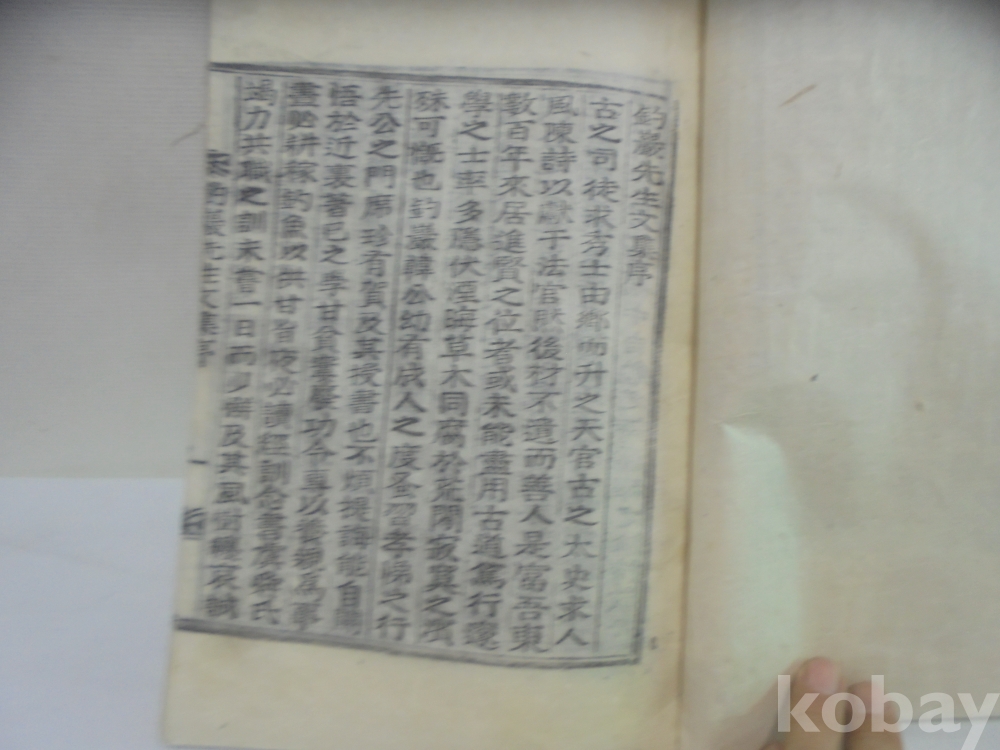 釣巖先生文集序
古之司徒求秀士由鄕而升之天官古之太史求人
風陳詩以獻于法官肰後材不遺而善人是富吾東
數百年來居進賢之位者或未能盡用古道篤行邃
學之士率多隱伏湮晦草木同腐於荒閒寂寞之濱
殊可慨也釣巖韓公幼有成人之度蚤習孝悌之行
先公之門席珍有賀及其授書也不煩提誨能自開
悟於近裏著己之學甘貧畫功令專以養親爲事
晝必耕稼釣魚以供甘旨夜必讀經訓念書虞舜氏
竭力共職之訓未嘗一日而少懈及其風樹纏哀
釣巖先生文集序 一
kobay